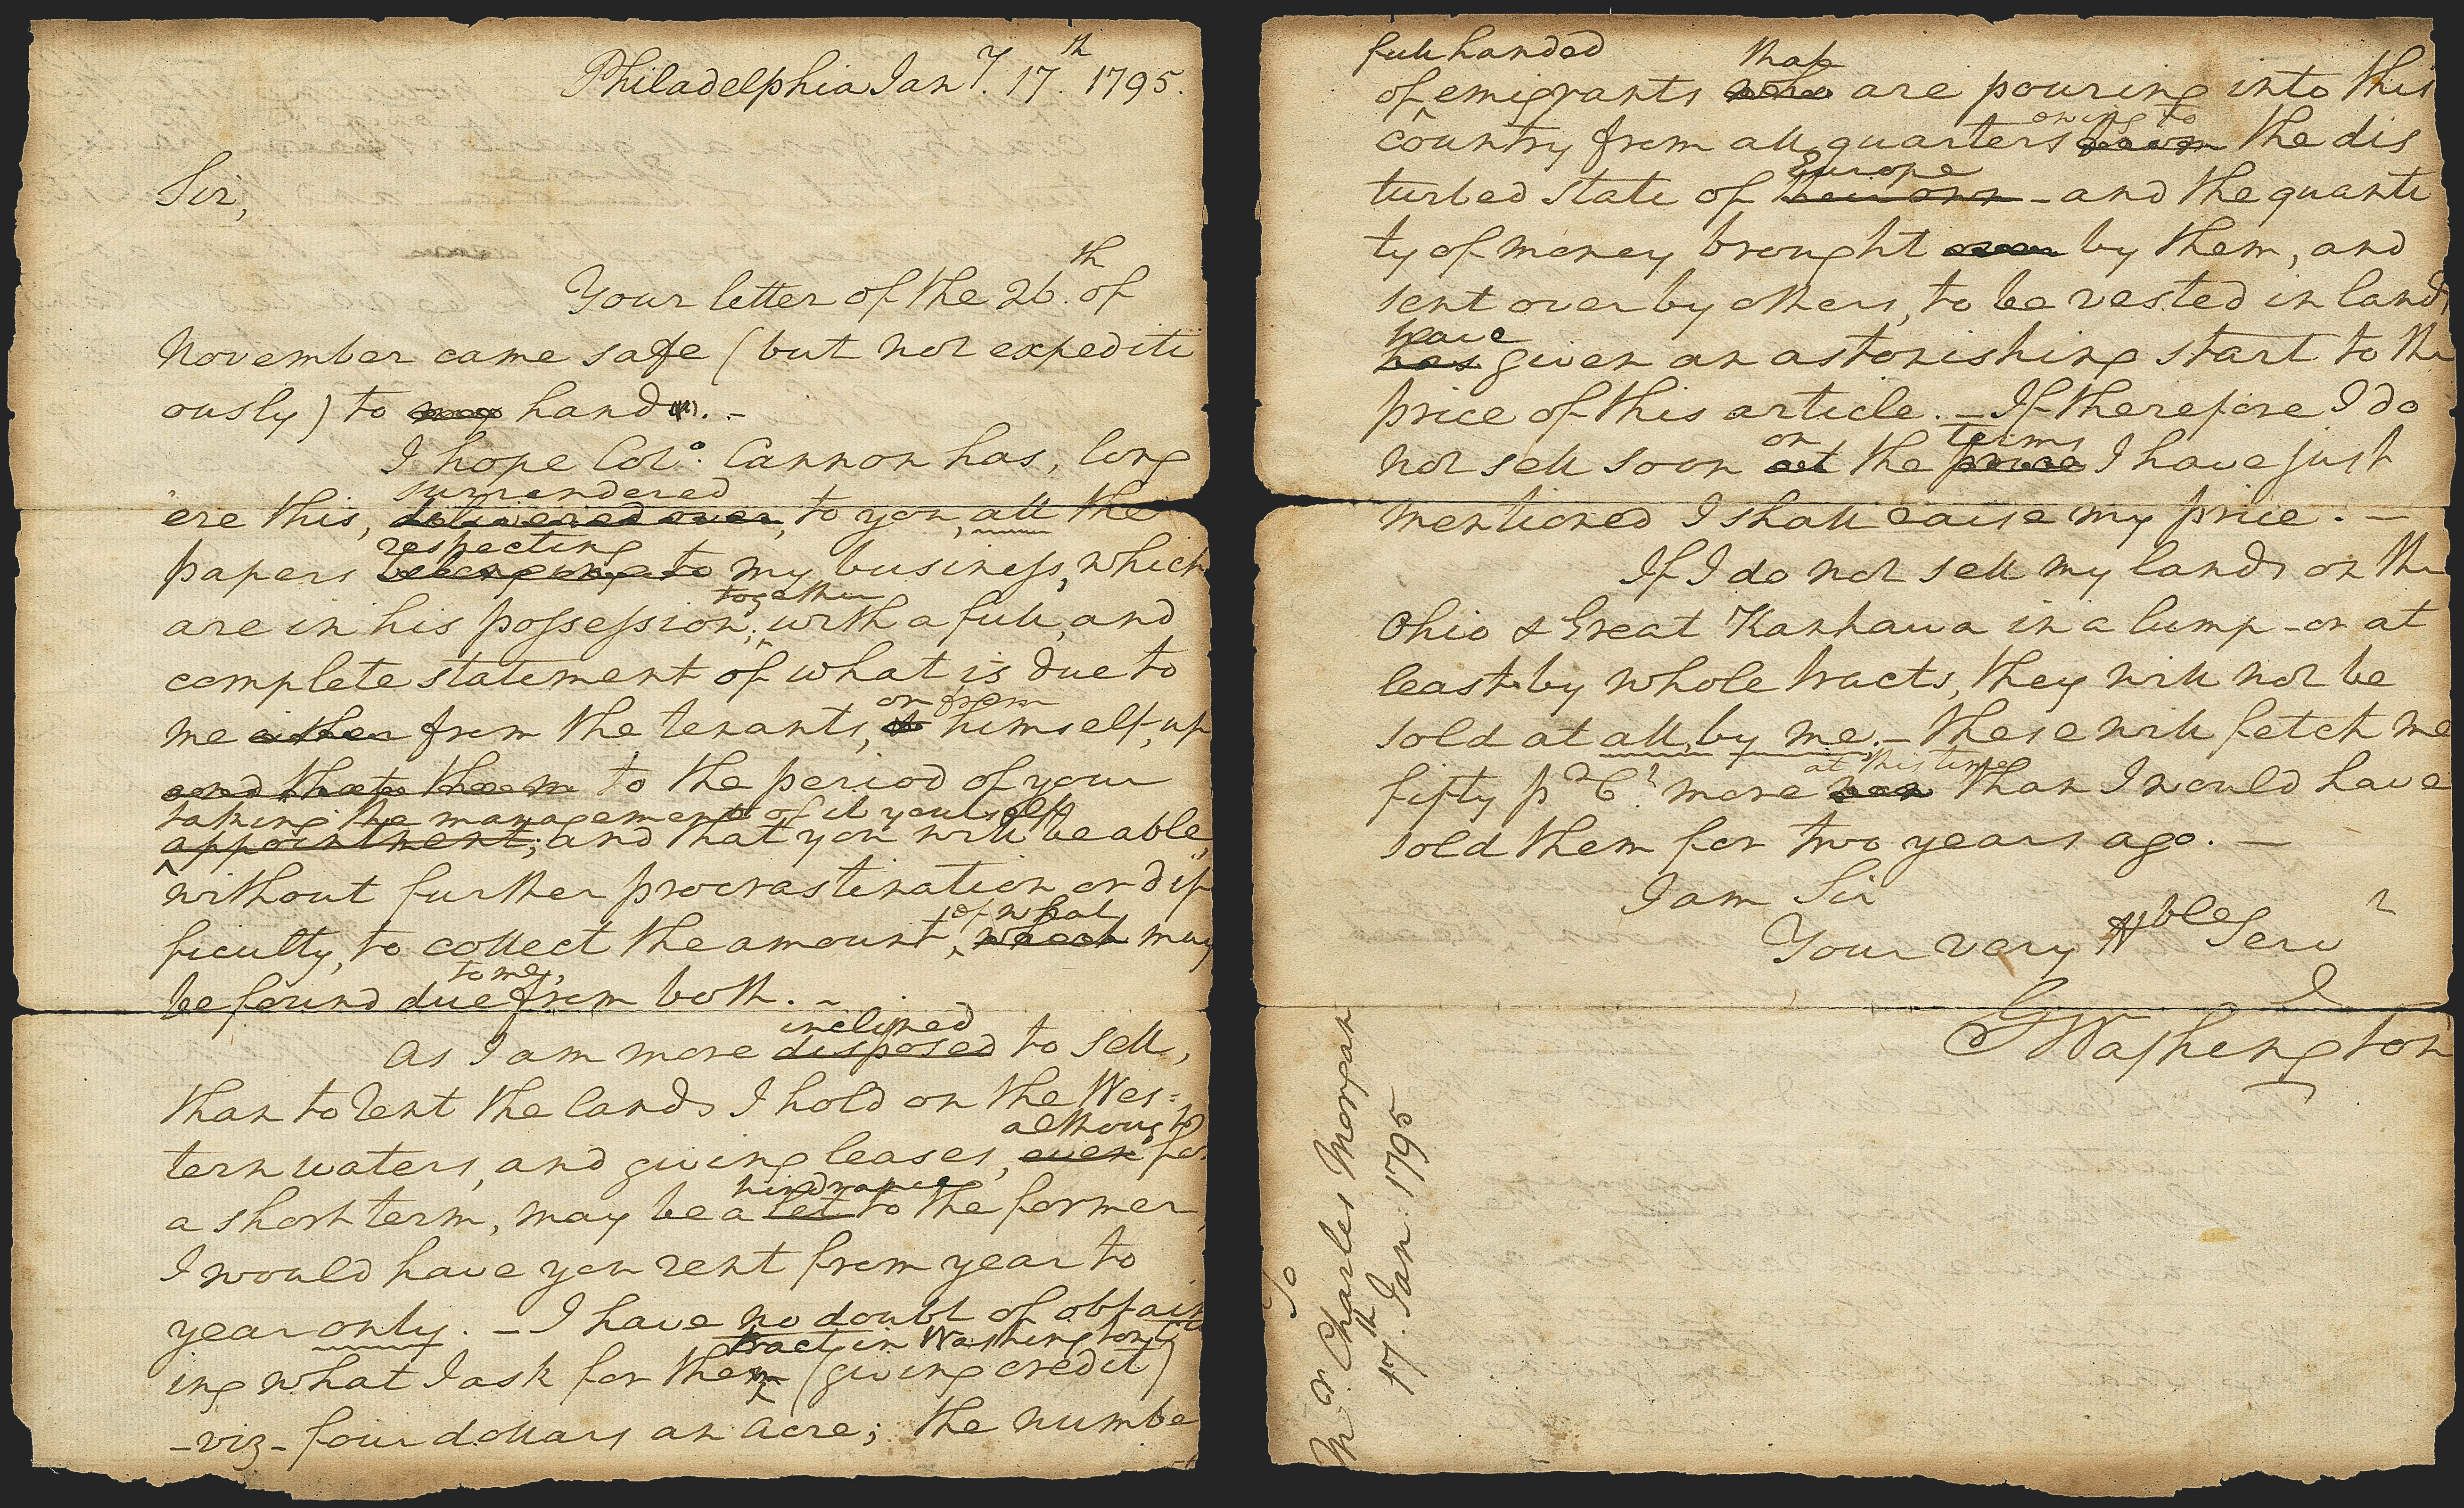 Philadelphia Jany. 17th. 1795.
Sir,
Your letter of the 26th. of
November came safe (but not expediti
ously) to my hands. -
I hope Colo. Cannon has, long
surrendered
'ere this, delivered over, to you, all the
respecting
papers belonging to my business, which
together
are in his possession, with a full, and
complete statement of what is due to
or from
me either from the tenants, or himself, up
and that them to the period of your
taking the management of it yourself
appointment; and that you will be able,
without further procrastination or dif
of what
ficulty, to collect the amount, which may
to me,
be found due from both. -
inclined
As I am more disposed to sell,
than to rent the lands I hold on the Wes=
although
tern waters, and giving leases, even for
hindrance
a short term, may be a let to the former,
I would have you rent from year to
year only. - I have no doubt of obtain
tract in Washington Cy
ing what I ask for them (giving credit)
- viz - four dollars an acre; the numbe
full handed that
of emigrants who are pouring into this
owing to
country from all quarters from the dis
Europe
turbed state of their own - and the quanti
ty of money brought over by them, and
sent over by others, to be vested in lands
have
has given an astonishing start to the
price of this article. - If therefore I do
on terms
not sell soon at the price I have just
mentioned I shall raise my price. -
If I do not sell my lands on the
Ohio & Great Kanhawa in a lump - or at
least by whole tracts, they will not be
sold at all, by me. - These will fetch me
at this time
fifty pr Ct. more now than I would have
sold them for two years ago. -
I am Sir
Your very Hble Servt
Go Washington
To
Mr. Charles Morgan
17th. Jan: 1795